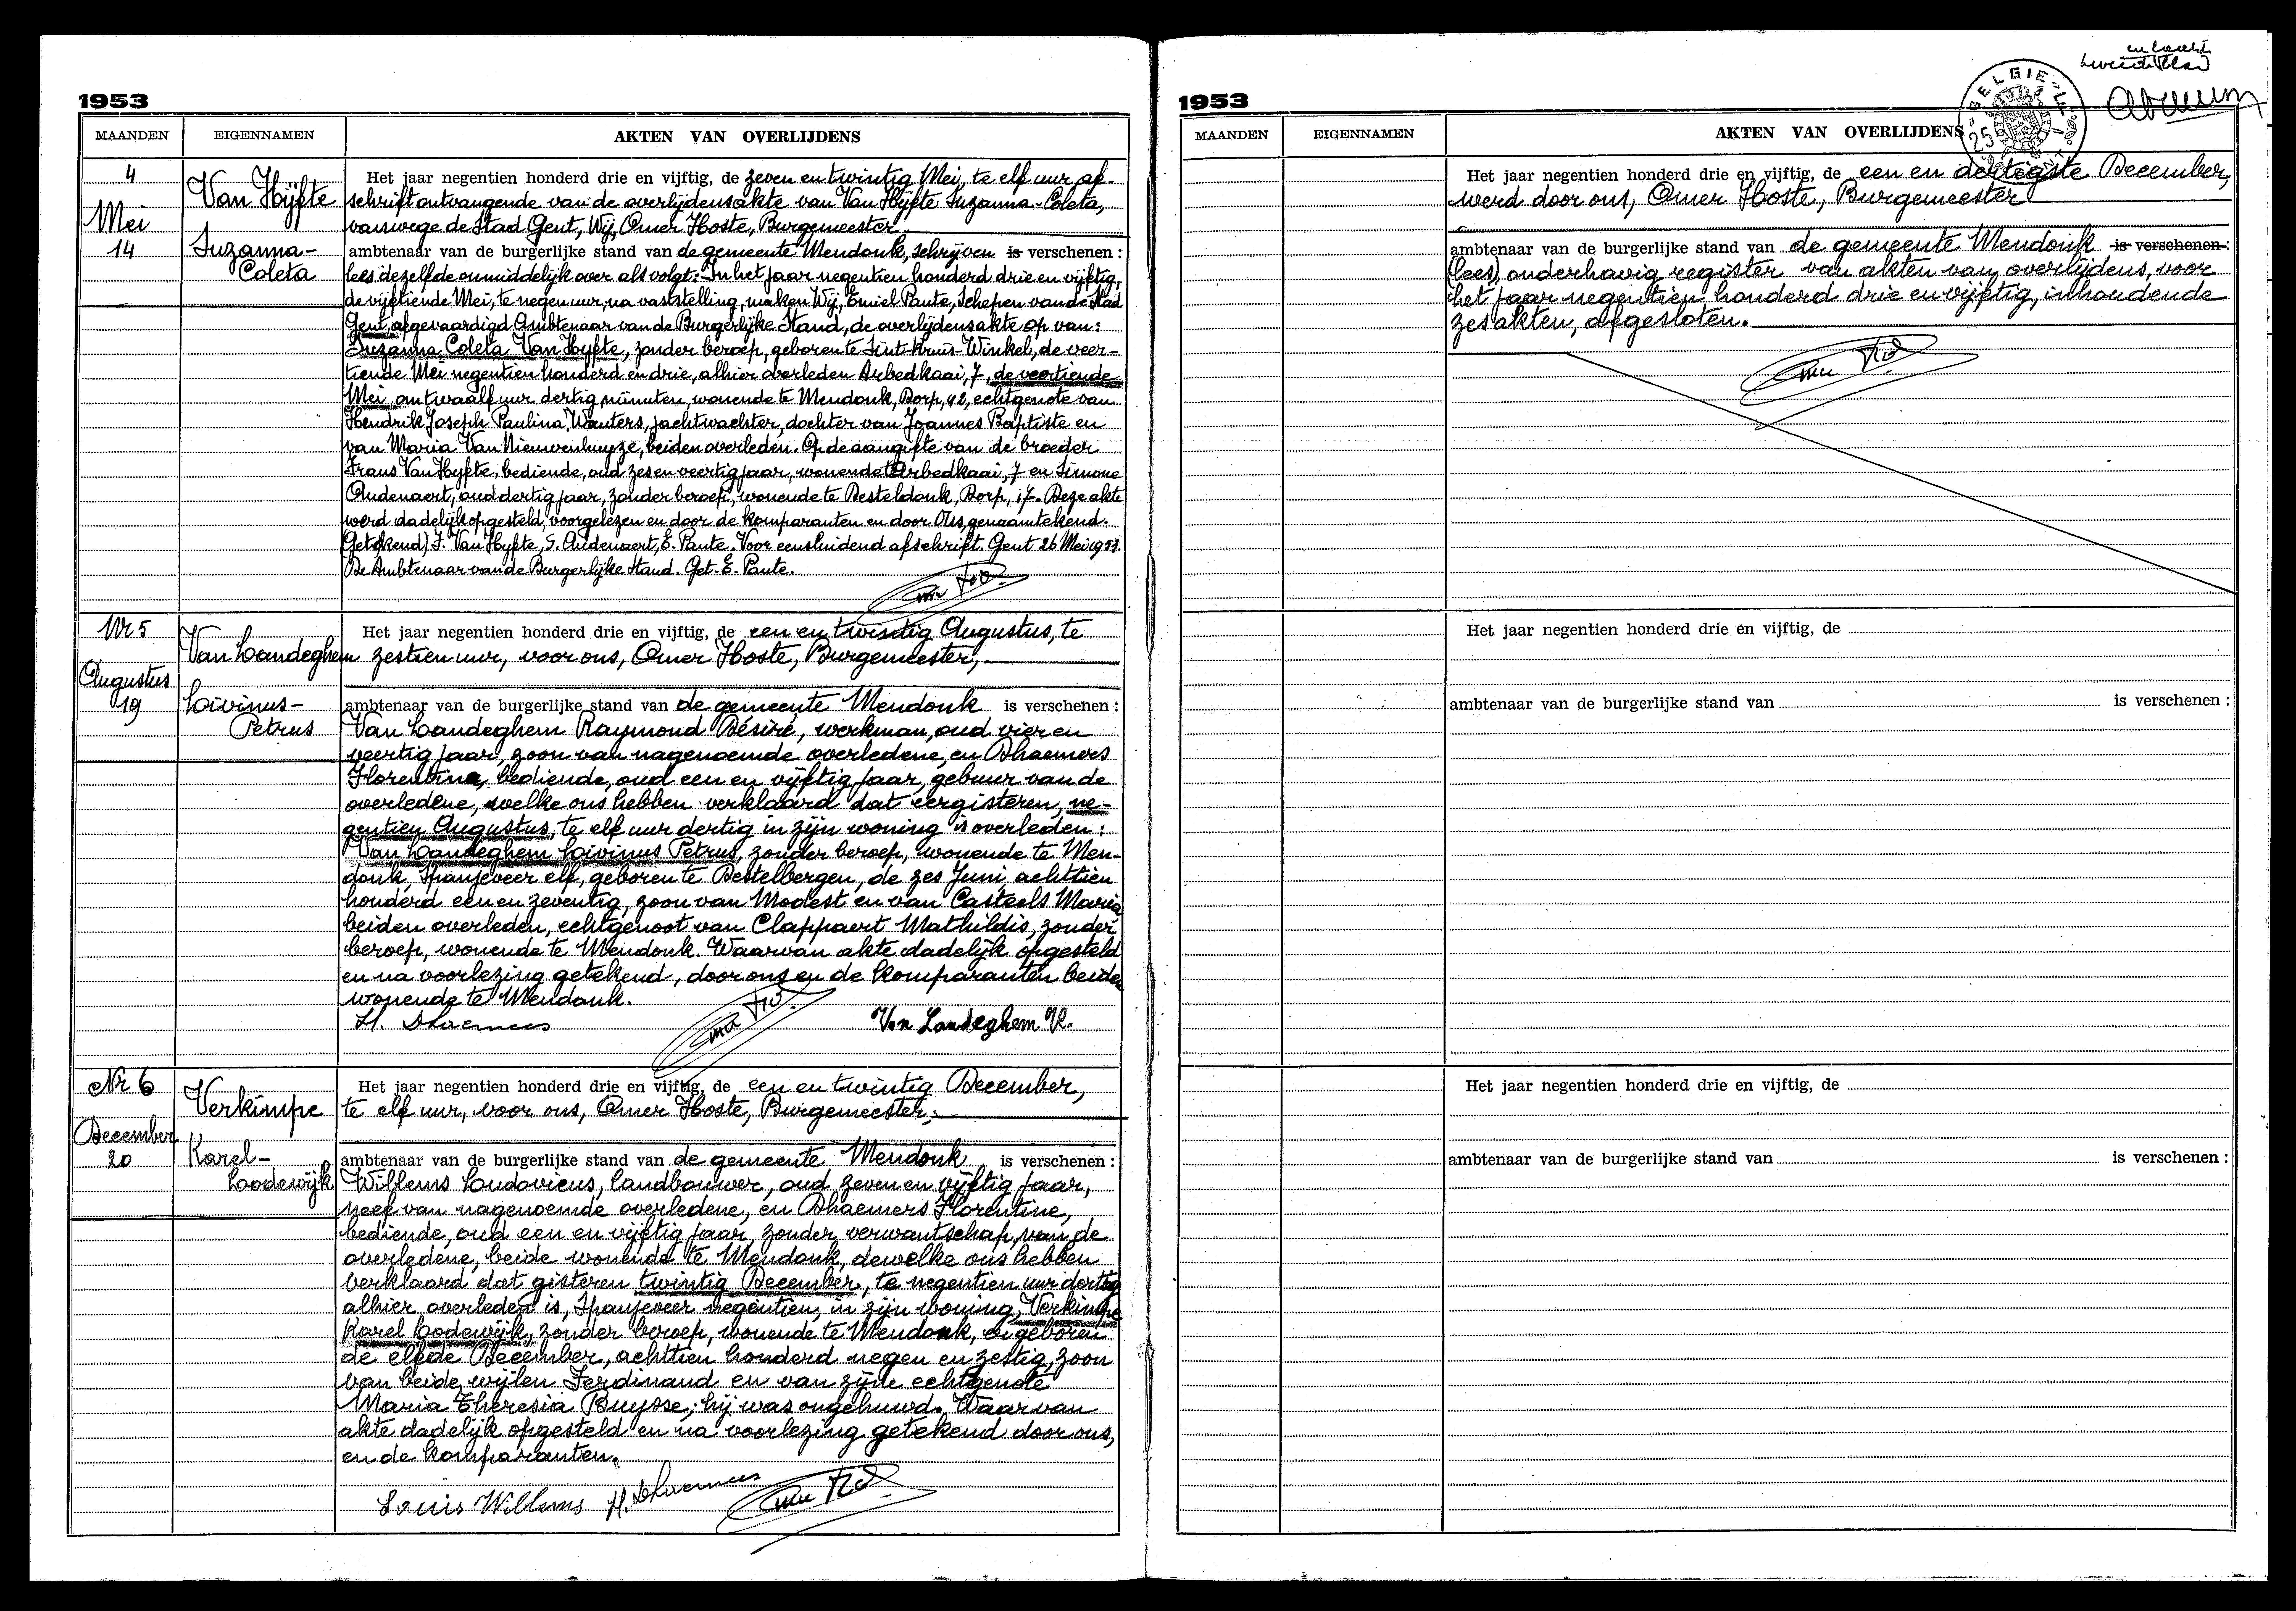 1953
MAANDEN EIGENNAMEN AKTEN VAN OVERLIJDENS
4
Mei
14
Van Hijfte
Suzanna-
Coleta
Het jaar negentien honderd drie en vijftig, de zeven en twintig Mei, te elf uur af-
schrift ontvangende van de overlijdensakte van Van Hijfte Suzanna-Coleta,
vanwege de Stad Gent, Wij, Omer Hoste, Burgemeester
ambtenaar van de burgerlijke stand van de gemeente Mendonk, schrijven is verschenen :
lees: dezelfde onmiddelijk over als volgt:- In het jaar negentien honderd drie en vijftig,
de vijftiende Mei, te negen uur, na vaststelling, maken Wij, Emiel Paute, Schepen van de Stad
Gent, afgevaardigd Ambtenaar van de Burgerlijke Stand, de overlijdensakte op van:
Suzanna Coleta Van Hyfte, zonder beroep, geboren te Sint-Kruis-Winkel, de veer-
tiende Mei negentien honderd en drie, alhier overleden Arbedkaai, 7, de veertiende
Mei, om twaalf uur dertig minuten, wonende te Mendonk, Dorp, 42, echtgenote van
Hendrik Joseph Paulina Wauters, jachtwachter, dochter van Joannes Baptiste en
van Maria Van Nieuwenhuyze, beiden overleden. Op de aangifte van de broeder
Frans Van Hyfte, bediende, oud zes en veertig jaar, wonende te Arbedkaai, 7 en Simone
Audenaert, oud dertig jaar, zonder beroep, wonende te Desteldonk, Dorp, 17. Deze akte
werd dadelijk opgesteld, voorgelezen en door de komparanten en door Ons, genaamtekend.
(Getekend) F. Van Hyfte, S. Audenaert, E. Paute. Voor eensluidend afschrift. Gent 26 Mei 1953.
De Ambtenaar van de Burgerlijke Stand. Get. E. Paute.
Nr 5
Augustus
19
Van Landeghem
Livinus-
Petrus
Het jaar negentien honderd drie en vijftig, de een en twintig Augustus, te
zestien uur, voor ons, Omer Hoste, Burgemeester,
ambtenaar van de burgerlijke stand van de gemeente Mendonk is verschenen :
Van Landeghem Raymond Désiré, werkman, oud vier en
veertig jaar, zoon van nagenoemde overledene, en Dhaemers
Florentine, bediende, oud een en vijftig jaar, gebuur van de
overledene, welke ons hebben verklaard dat eergisteren, ne-
gentien Augustus, te elf uur dertig in zijn woning is overleden :
Van Landeghem Livinus Petrus, zonder beroep, wonende te Men-
donk, Spanjeveer elf, geboren te Destelbergen, de zes Juni achttien
honderd een en zeventig, zoon van Modest en van Casteels Maria
beiden overleden, echtgenoot van Clappaert Mathildis, zonder
beroep, wonende te Mendonk. Waarvan akte dadelijk opgesteld
en na voorlezing getekend, door ons en de komparanten beiden
wonende te Mendonk.
Fl. Dhaemers Van Landeghem R.
Nr 6
December
20
Verkimpe
Karel-
Lodewijk
Het jaar negentien honderd drie en vijftig, de een en twintig December,
te elf uur, voor ons, Omer Hoste, Burgemeester,
ambtenaar van de burgerlijke stand van de gemeente Mendonk is verschenen :
Willems Ludovicus, landbouwer, oud zeven en vijftig jaar,
neef van nagenoemde overledene, en Dhaemers Florentine,
bediende, oud een en vijftig jaar, zonder verwantschap van de
overledene, beide wonende te Mendonk, dewelke ons hebben
verklaard dat gisteren twintig December, te negentien uur dertig
alhier overleden is, Spanjeveer negentien, in zijn woning, Verkimpe
Karel Lodewijk, zonder beroep, wonende te Mendonk, en geboren
de elfde December, achttien honderd negen en zestig, zoon
van beide wijlen Ferdinand en van zijne echtgenote
Maria Theresia Buysse; hij was ongehuwd. Waarvan
akte dadelijk opgesteld en na voorlezing getekend door ons,
en de komparanten.
Louis Willems Fl. Dhaemers
1953
BELGIE
25
MAANDEN EIGENNAMEN AKTEN VAN OVERLIJDENS
Het jaar negentien honderd drie en vijftig, de een en dertigste December,
werd door ons, Omer Hoste, Burgemeester
ambtenaar van de burgerlijke stand van de gemeente Mendonk is verschenen :
(lees) onderhavig register van akten van overlijdens, voor
het jaar negentien honderd drie en vijftig, inhoudende
zes akten, afgesloten.
Het jaar negentien honderd drie en vijftig, de
ambtenaar van de burgerlijke stand van is verschenen :
Het jaar negentien honderd drie en vijftig, de
ambtenaar van de burgerlijke stand van is verschenen :